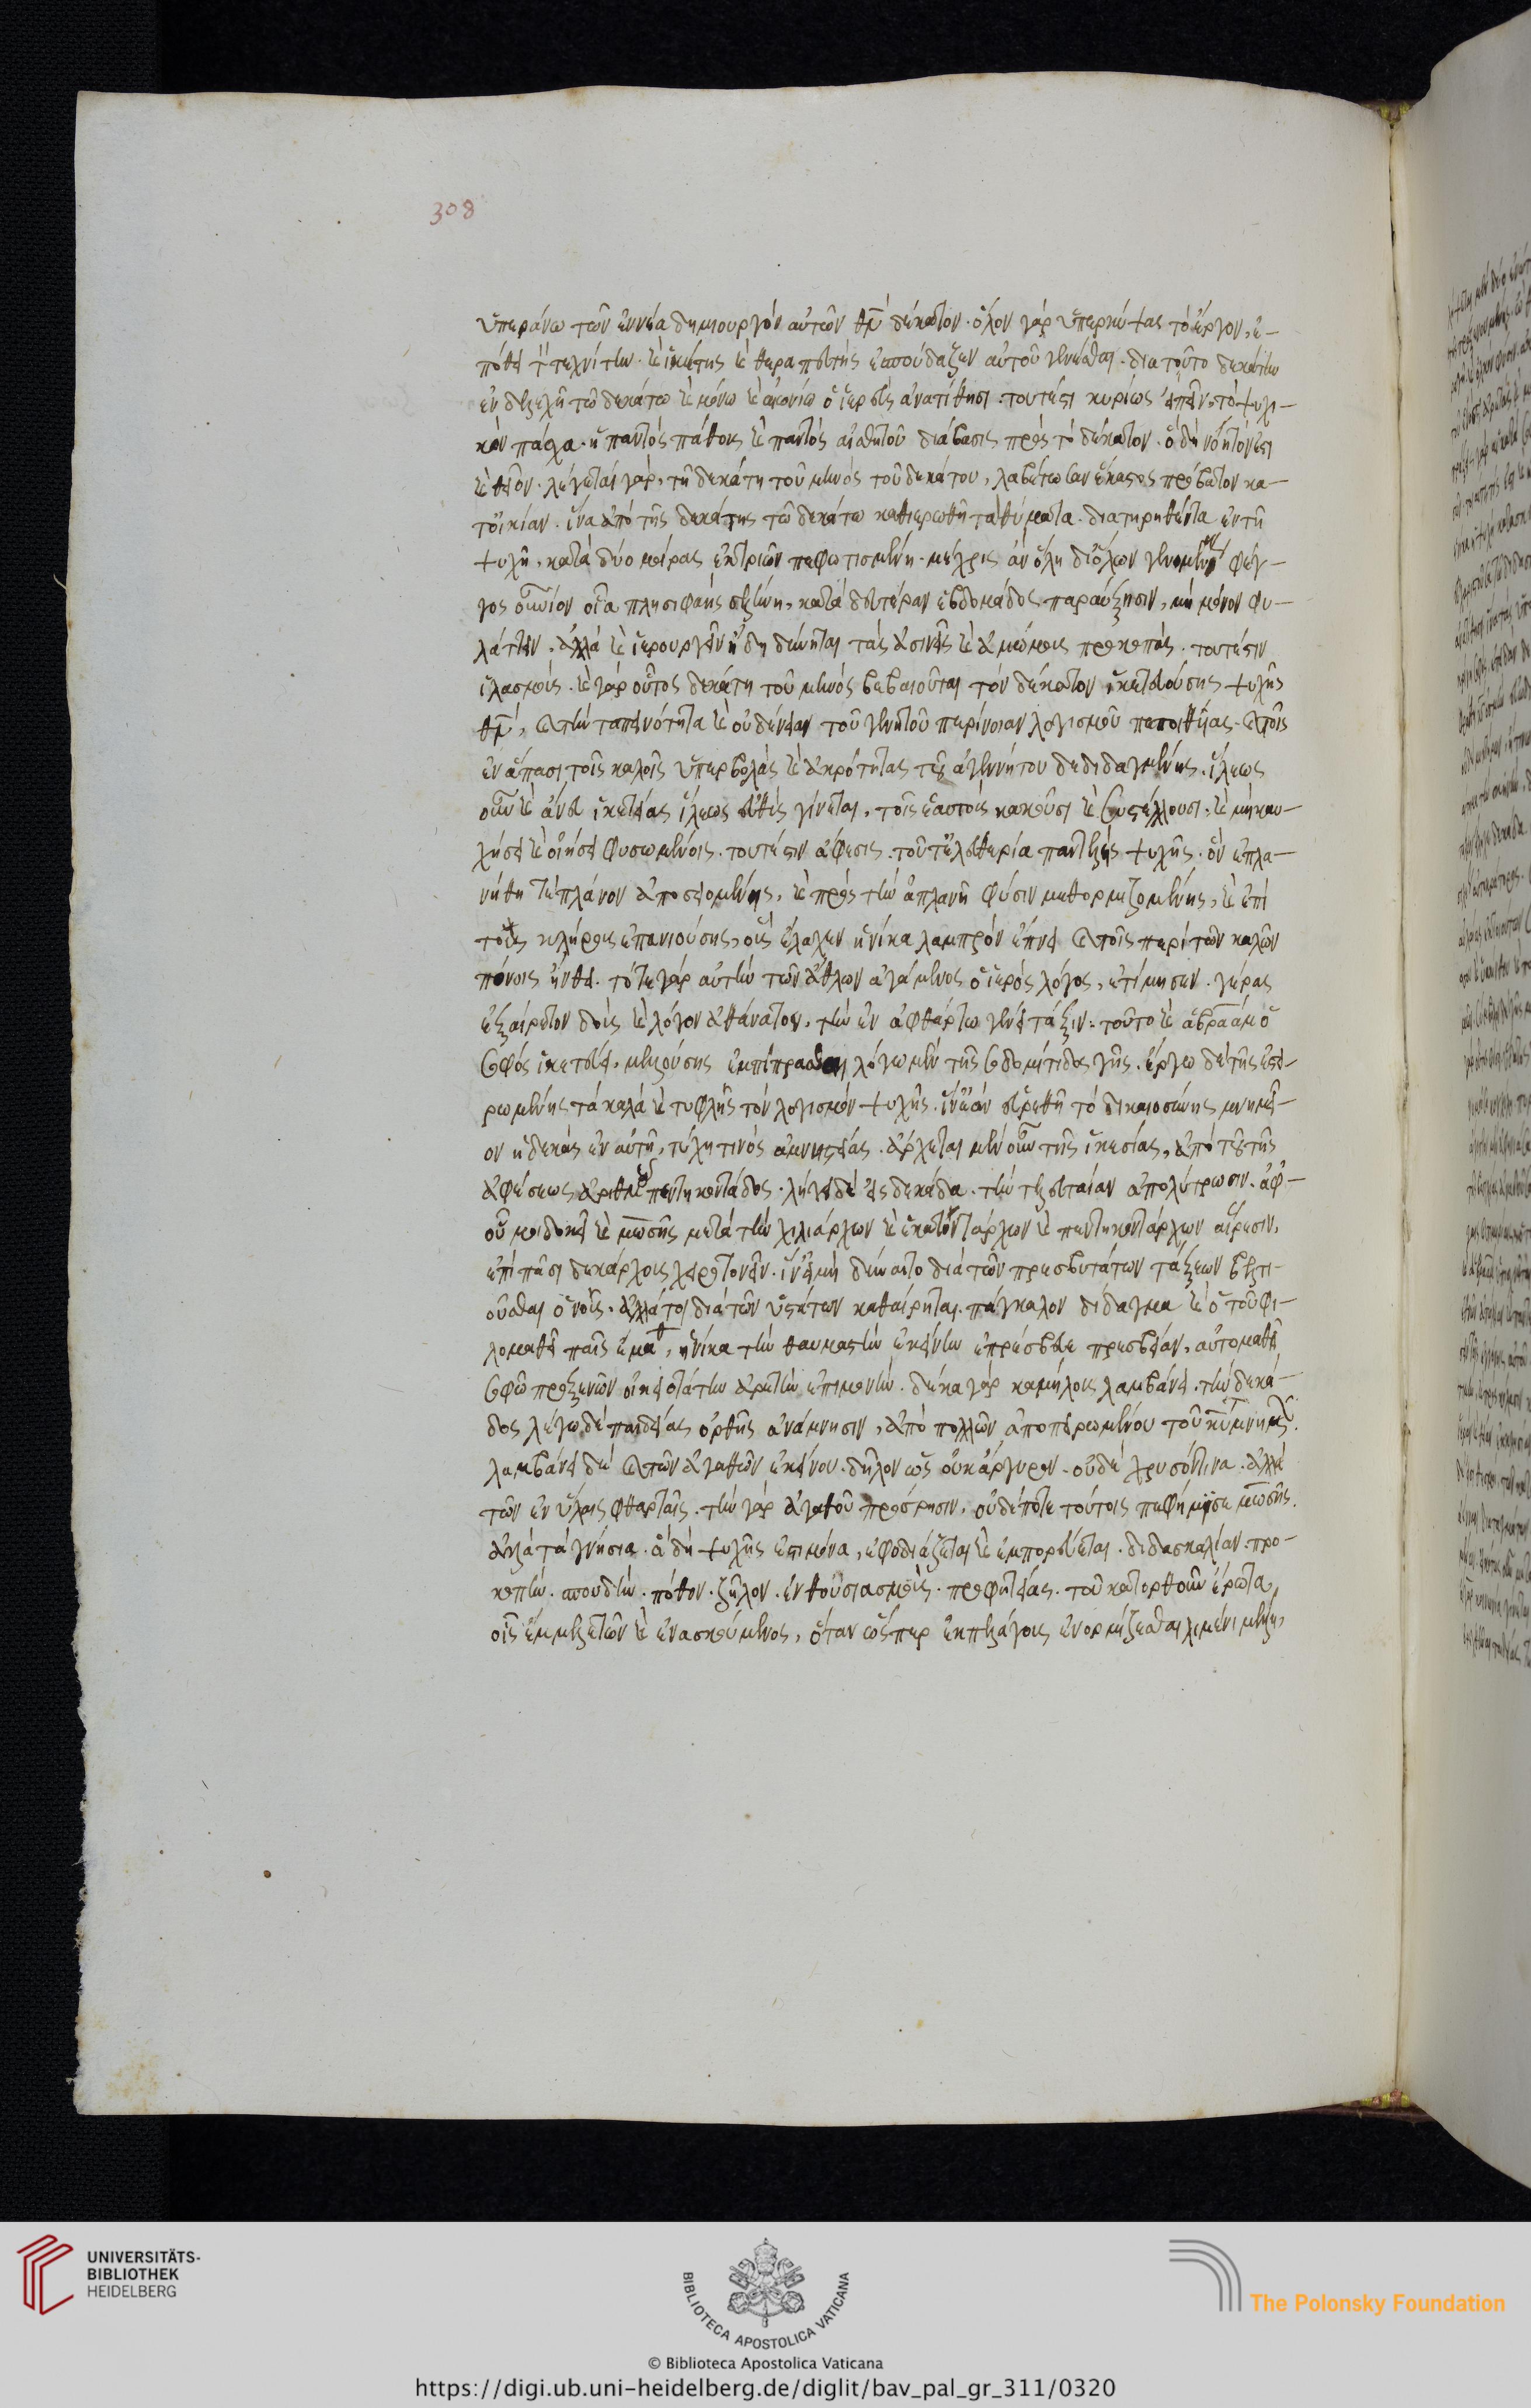 308
ὑπεράνω τῶν ἐννέα δημιουργὸν αὐτῶν θν̄ δέκατον· ὅλον γὰρ ὑπερκύψας τὸ ἔργον, ἐ-
πόθει τ τεχνίτην· καὶ ἱκέτης καὶ θεραπευτὴς ἐσπούδαζεν αὐτοῦ γενέσθαι· διατοῦτο δεκάτην
ἐνδελεχῆ τῷ δεκάτῳ καὶ μόνῳ καὶ αἰωνίῳ ὁ ἱερεὺς ἀνατίθησι· τουτέστι κυρίως εἰπεῖν, τὸ ψυχι-
κὸν πάσχα· ἡ παντὸς πάθους καὶ παντὸς αἰσθητοῦ διάβασις πρὸς τὸ δέκατον· ὃ δὴ νοητόν ἐστι
καὶ θεῖον· λέγεται γάρ, τῇ δεκάτῃ τοῦ μηνὸς τοῦ δεκάτου, λαβέτωσαν ἕκαστος πρόβατον κα-
τοικίαν· ἵνα ἀπὸ τῆς δεκάτης τῷ δεκάτῳ καθιερωθῇ τὰ θύματα· διατηρηθέντα ἐν τῇ
ψυχῇ, κατὰ δύο μοίρας ἐκ τριῶν πεφωτισμένῃ· μέχρις ἂν ὅλη διόλων γενομένη φέγ-
γος οὐράνιον οἷα πλησιφαὴς σελήνη, κατὰ δευτέραν ἑβδομάδος παραύξησιν, μὴ μόνον φυ-
λάττειν, ἀλλὰ καὶ ἱερουργεῖν ἤδη δύνηται τὰς ἀσινεῖς καὶ ἀμώμους προκοπάς· τουτέστιν
ἱλασμούς· καὶ γὰρ οὗτος δεκάτῃ τοῦ μηνὸς βεβαιοῦται τὸν δέκατον ἱκετευούσης ψυχῆς
θν̄, τὴν ταπεινότητα καὶ οὐδένειαν τοῦ γενητοῦ περίνοιαν λογισμοῦ πεποιθήας· τοῖς
ἐν ἅπασι τοῖς καλοῖς ὑπερβολὰς καὶ ἀκρότητας τοῦ ἀγεννήτου δεδιδαγμένης· ἵλεως
οὖν καὶ ἄνευ ἱκετείας ἵλεως εὐθὺς γίνεται, τοῖς ἑαυτοὺς κακοῦσι καὶ συστέλλουσι, καὶ μὴ καυ-
χήσει καὶ οἰήσει φυσωμένοις· τουτέστιν ἄφεσις· τοῦτ' ἐλευθερία παντελὴς ψυχῆς· ὃν ἐπλα-
νήθη τε πλάνον ἀποσειομένης, καὶ πρὸς τὴν ἀπλανῆ φύσιν μεθορμιζομένης, καὶ ἐπὶ
τοὺς κλήρους ἐπανιούσης, οὓς ἔλαχεν ἡνίκα λαμπρὸν ἔπνει τοῖς περὶ τῶν καλῶν
πόνοις ἤνθει· τότε γὰρ αὐτὴν τῶν ἄθλων ἀγάμενος ὁ ἱερὸς λόγος, ἐτίμησεν, γέρας
ἐξαίρετον δοὺς καὶ λόγον ἀθάνατον, τὴν ἐν ἀφθάρτῳ γένει τάξιν· τοῦτο καὶ ἀβραὰμ ὁ
σοφὸς ἱκετεύει, μελλούσης ἐμπίπρασθαι λόγῳ μὲν τῆς σοδομίτιδος γῆς· ἔργῳ δὲ τῆς ἐστει-
ρωμένης τὰ καλὰ καὶ τυφλῆς τὸν λογισμὸν ψυχῆς· ἵν' ἐὰν εὑρεθῇ τὸ δικαιοσύνης μνημεῖ-
ον ἡ δεκὰς ἐν αὐτῇ, τύχῃ τινὸς ἀμνηστείας· ἄρχεται μὲν οὖν τῆς ἱκεσίας, ἀπὸ τοῦ τῆς
ἀφέσεως ἀριθμοῦ πεντηκοντάδος· λήγει δὲ εἰς δεκάδα· τὴν τελευταίαν ἀπολύτρωσιν· ἀφ'
οὗ μοι δοκεῖ καὶ μωσῆς μετὰ τὴν χιλιάρχων καὶ ἑκατοντάρχων καὶ πεντηκοντάρχων αἵρεσιν,
ἐπὶ πᾶσι δεκάρχους χειροτονεῖν· ἵν' εἰ μὴ δύναιτο διὰ τῶν πρεσβυτάτων τάξεων βελτι-
οῦσθαι ὁ νοῦς· ἀλλά τοι διὰ τῶν ὑστάτων καθαίρηται· πάγκαλον δίδαγμα καὶ ὁ τοῦ φι-
λομαθοῦς παῖς ἔμαθε, ἡνίκα τὴν θαυμαστὴν ἐκείνην ἐπρέσβευε πρεσβείαν, αὐτομαθεῖ
σοφῷ προξενῶν οἰκειοτάτην ἀρετὴν ἐπιμονήν· δέκα γὰρ καμήλους λαμβάνει, τὴν δεκά-
δος λέγω δὲ παιδείας ὀρθῆς ἀνάμνησιν, ἀπὸ πολλῶν
λαμβάνει δὲ τῶν ἀγαθῶν ἐκείνου· δῆλον ὡς οὐκ ἄργυρον· οὐδὲ χρυσόν τινα· ἀλλά
τῶν ἐν ὕλαις φθαρταῖς· τὴν γὰρ ἀγαθοῦ πρόσρησιν, οὐδέποτε τούτοις πεφήμισε μωσῆς.
ἀλλὰ τὰ γνήσια· ἃ δὴ ψυχῆς ἐστι μόνα, ἐφοδιάζεται καὶ ἐμπορεύεται· διδασκαλίαν· προ-
κοπήν· σπουδήν· πόθον· ζῆλον· ἐνθουσιασμούς· προφητείας· τοῦ κατορθοῦν ἔρωτα,
οἷς ἐμμελετῶν καὶ ἐνασκούμενος, ὅταν ὥσπερ ἐκ πελάγους ἐνορμίζεσθαι λιμένι μέλλῃ,
UNIVERSITÄTS-
BIBLIOTHEK
HEIDELBERG
BIBLIOTECA APOSTOLICA VATICANA
The Polonsky Foundation
© Biblioteca Apostolica Vaticana
https://digi.ub.uni-heidelberg.de/diglit/bav_pal_gr_311/0320